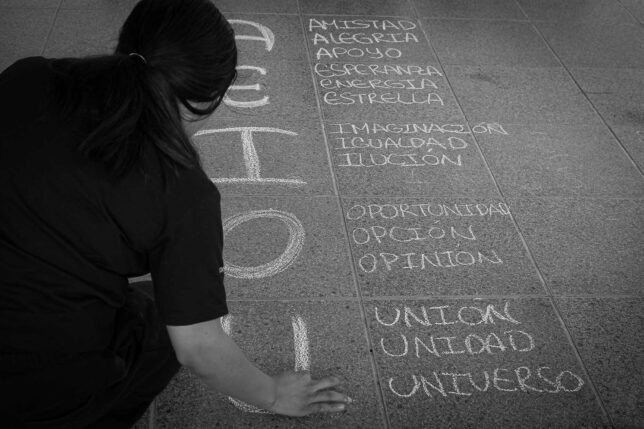 A
AMISTAD
ALEGRIA
APOYO
E
ESPERANZA
ENERGIA
ESTRELLA
I
IMAGINACIÓN
IGUALDAD
ILUCIÓN
O
OPORTUNIDAD
OPCIÓN
OPINIÓN
U
UNION
UNIDAD
UNIVERSO